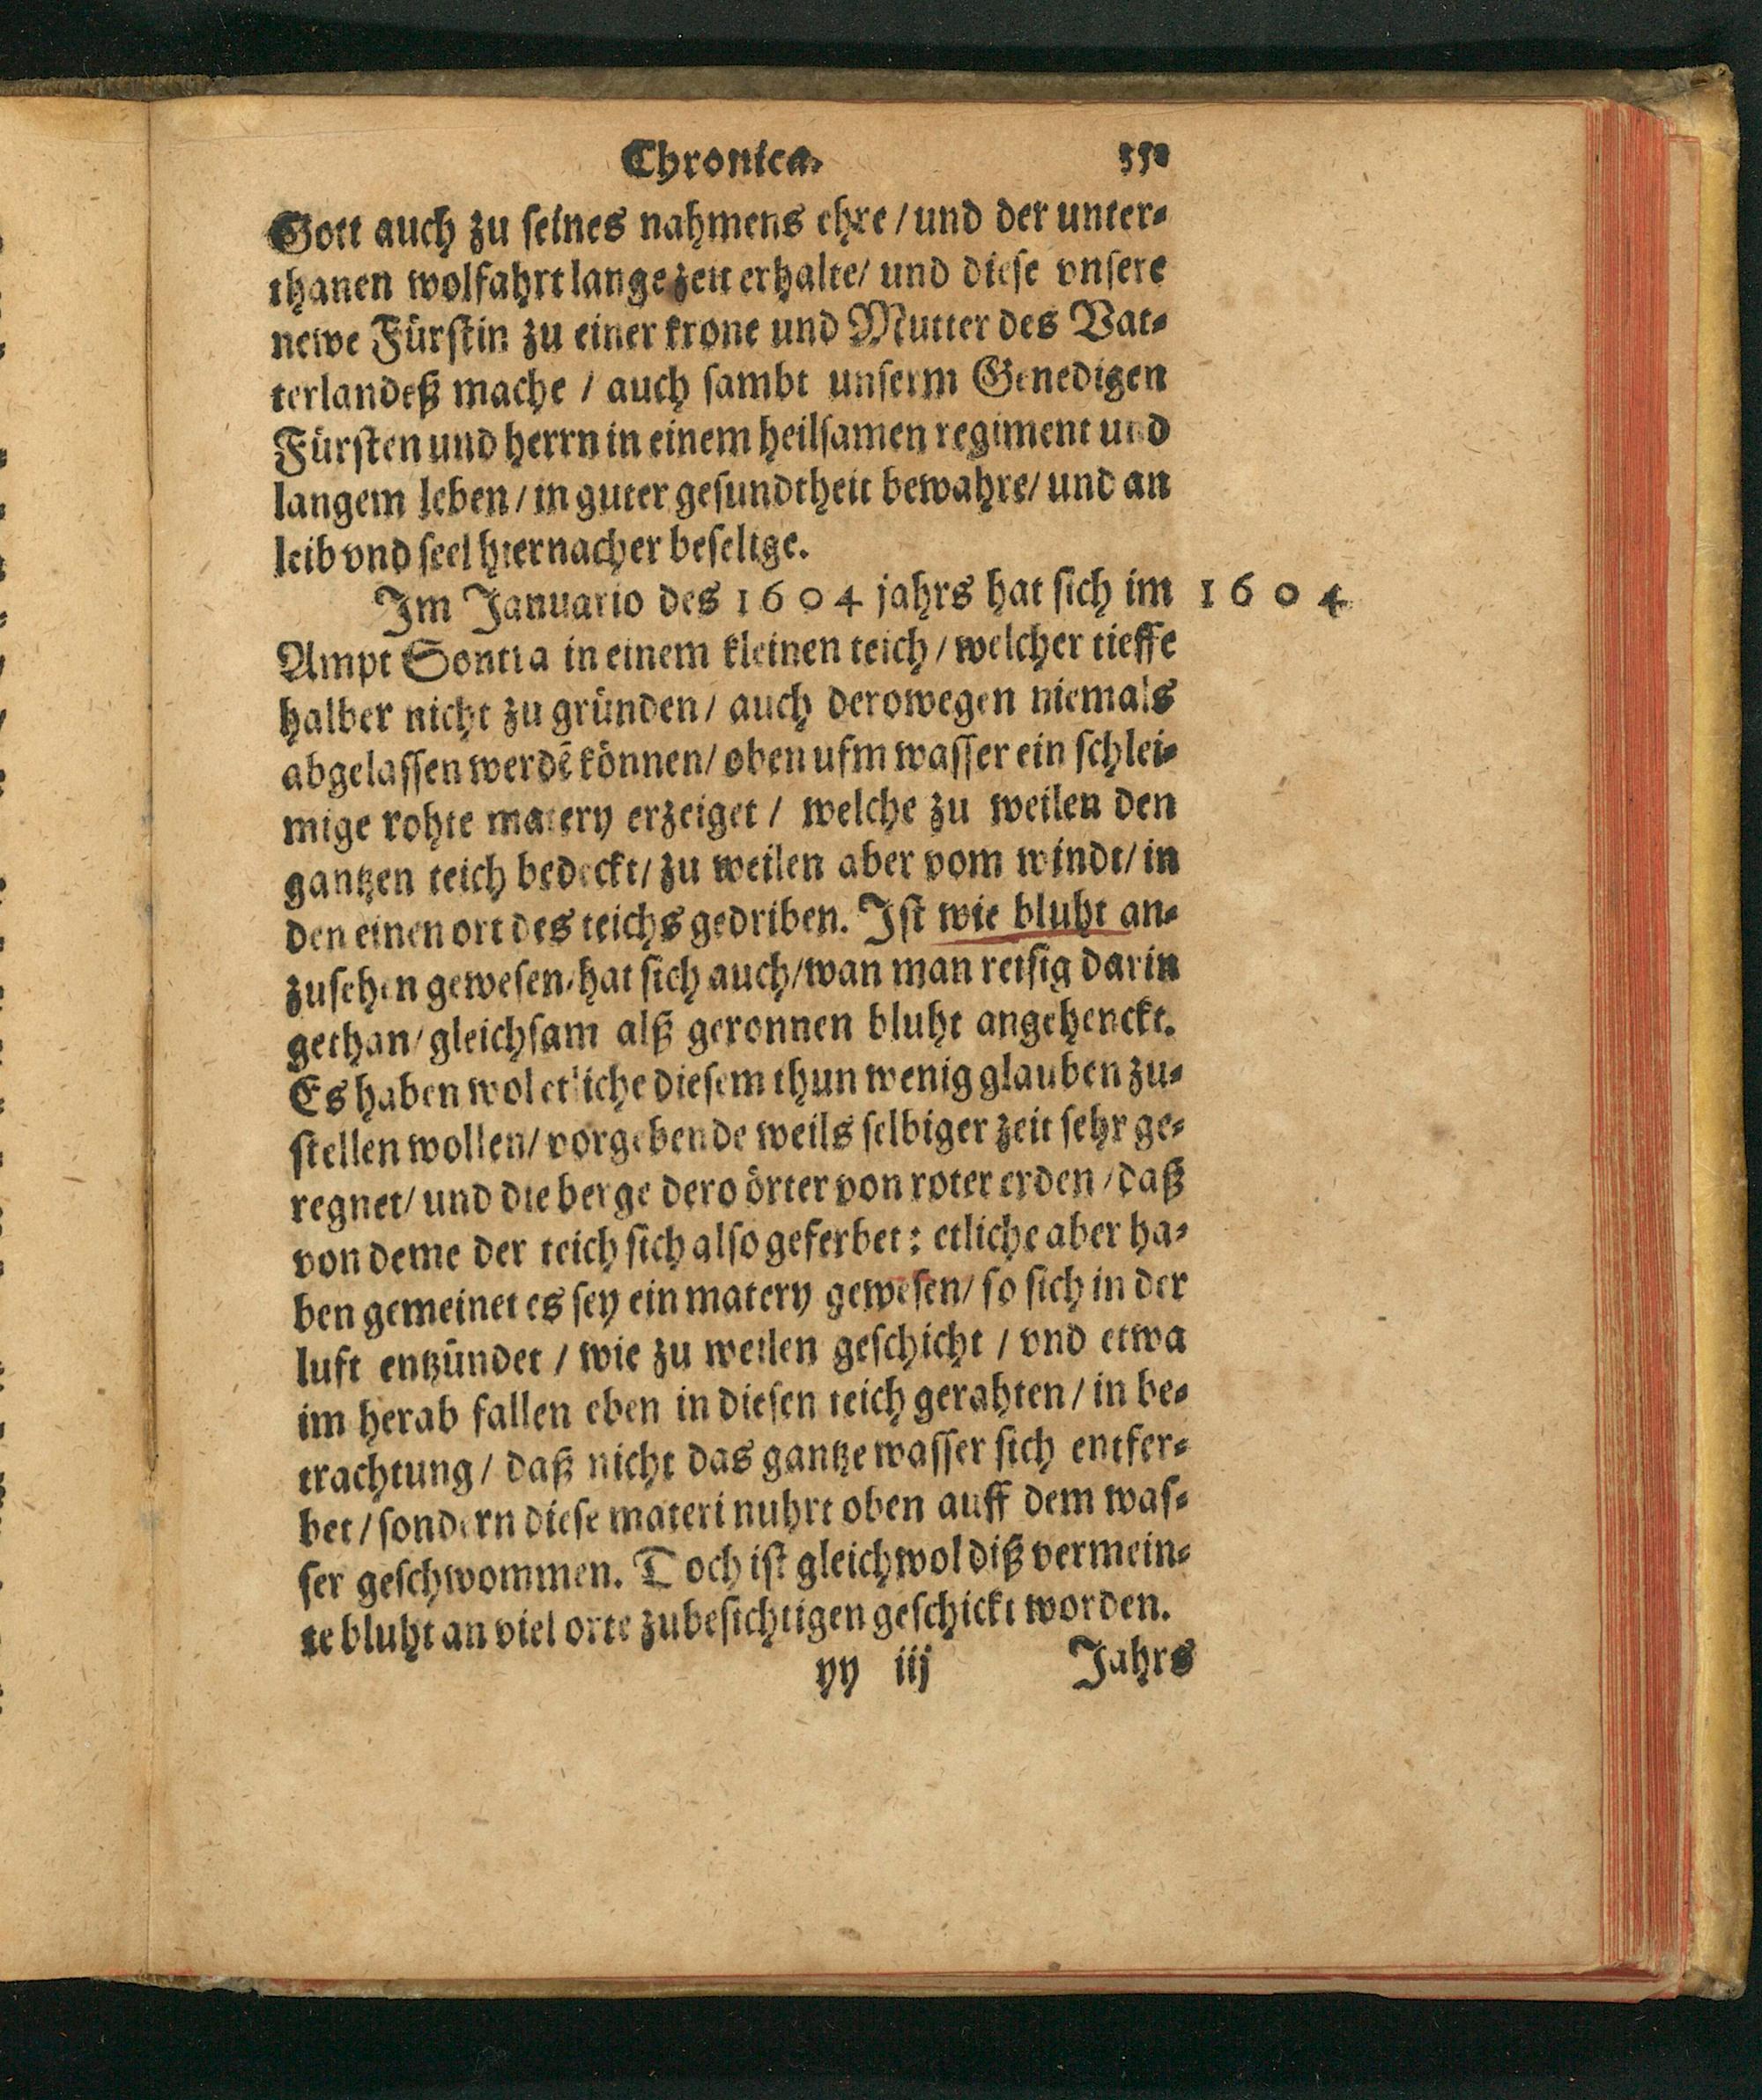 Chronica.
Gott auch zu seines nahmens ehre / und der unter-
thanen wolfahrt lange zeit erhalte / und diese vnsere
newe Fürstin zu einer krone und Mutter des Vat-
terlandeß mache / auch sambt unserm Genedigen
Fürsten und herrn in einem heilsamen regiment und
langem leben / in guter gesundtheit bewahre / und an
leib vnd seel hiernacher beselige.
Im Januario des 1604 jahrs hat sich im 1604
Ampt Sontra in einem kleinen teich / welcher tieffe
halber nicht zu gründen / auch derowegen niemals
abgelassen werdē können / oben ufm wasser ein schlei-
mige rohte matery erzeiget / welche zu weilen den
gantzen teich bedeckt / zu weilen aber vom windt / in
den einen ort des teichs gedriben. Ist wie bluht an-
zusehen gewesen / hat sich auch / wan man reisig darin
gethan / gleichsam alß geronnen bluht angehenckt.
Es haben wol etliche diesem thun wenig glauben zu-
stellen wollen / vorgebende weils selbiger zeit sehr ge-
regnet / und die berge dero örter von roter erden / daß
von deme der teich sich also geferbet : etliche aber ha-
ben gemeinet es sey ein matery gewesen / so sich in der
luft entzündet / wie zu weilen geschicht / vnd etwa
im herab fallen eben in diesen teich gerahten / in be-
trachtung / daß nicht das gantze wasser sich entfer-
bet / sondern diese materi nuhrt oben auff dem was-
ser geschwommen. Doch ist gleichwol diß vermein-
te bluht an viel orte zubesichtigen geschickt worden.
yy iij Jahrs